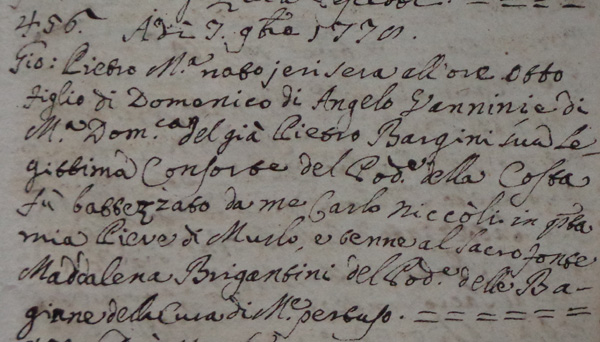 456. A dì 7. 9bre 1770.
Gio: Pietro M.a nato jeri sera all'ore otto
figlio di Domenico di Angelo Vannini e di
M.a Dom.ca del già Pietro Bargini sua Le-
gittima Consorte del Pod.e della Costa
fù battezzato da me Carlo Niccòli in q̃sta
mia Pieve di Murlo, e tenne al Sacro fonte
Madd.alena Brigantini del Pod.e delle Ba-
gnine della Cura di M.e pertuso. = = = = = =